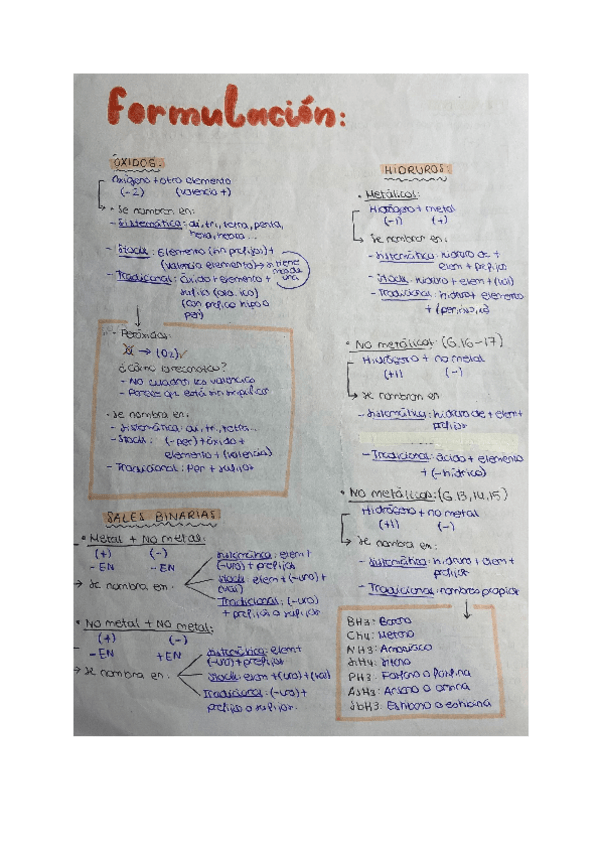 Formulación:
ÓXIDOS.
Oxígeno + otro elemento
(-2) (valencia +)
• Se nombran en:
- Sistemática: di, tri, tetra, penta,
hexa, hepta...
- Stock: Elemento (sin prefijos) +
(valencia elemento) → si tiene
más de
una
- Tradicional: Óxido + elemento +
sufijo (oso, ico)
(con prefijo hipo o
per)
• Peróxidos:
→ (O2)
¿Cómo reconozco?
- No cuadran las valencias
- Porque está sin simplificar
• Se nombra en:
- Sistemática: di, tri, tetra...
- Stock: (-per) + óxido +
elemento + (valencia)
- Tradicional: Per + sufijos
SALES BINARIAS
• Metal + No metal:
(+) (-)
- EN
→ Se nombra en:
Sistemática: elem +
(-uro) + prefijos
Stock: elem + (-uro) +
(val)
Tradicional: (-uro)
+ prefijos o sufijos
• No metal + No metal:
(+) (-)
- EN + EN
→ Se nombra en:
Sistemática: elem +
(-uro) + prefijos
Stock: elem + (uro) + (val)
Tradicional: (-uro) +
prefijos o sufijos.
HIDRUROS:
• Metálicos:
Hidrógeno + metal
(-1) (+)
→ Se nombran en:
- Sistemática: hidruro de +
elem + prefijos
- Stock: hidruro + elem + (val)
- Tradicional: hidruro + elemento
• No metálicos: (G.16-17)
Hidrógeno + no metal
(+1) (-)
→ Se nombran en
- Sistemática: hidruro de + elem +
prefijos
- Tradicional: ácido + elemento
+ (-hídrico)
• No metálicos: (G.13,14,15)
Hidrógeno + no metal
(+1) (-)
→ Se nombra en:
- Sistemática: hidruro + elem +
prefijos
- Tradicional: nombres propios
BH3: Borano
CH4: Metano
NH3: Amoniaco
SiH4: Silano
PH3: Fosfano o fosfina
AsH3: Arsano o arsina
SbH3: Estibano o estibina